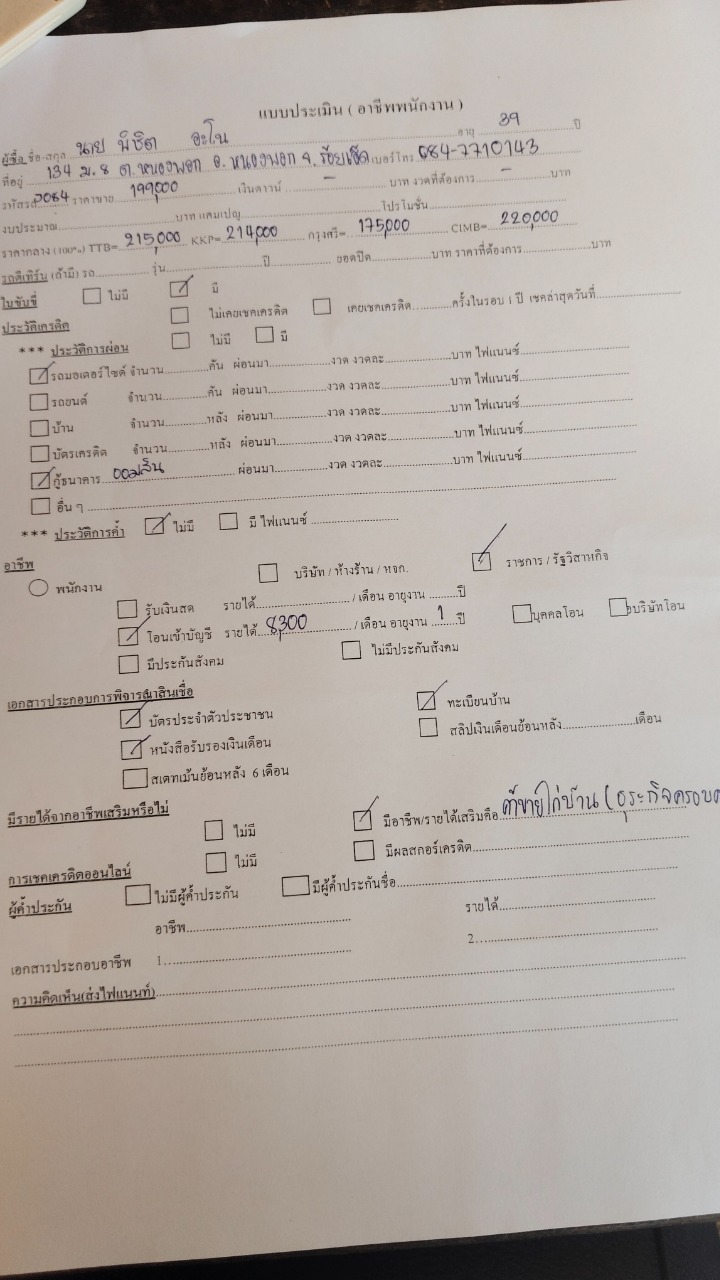 แบบประเมิน ( อาชีพพนักงาน )
ผู้ซื้อ ชื่อ-สกุล นาย พิชิต อะโน อายุ 39 ปี
ที่อยู่ 134 ม.8 ต.หนองพอก อ.หนองพอก จ.ร้อยเอ็ด เบอร์โทร 084-7710143
รหัสรถ 2084 ราคาขาย 199,000 เงินดาวน์ - บาท งวดที่ต้องการ - บาท
งบประมาณ บาท แคมเปญ โปรโมชั่น
ราคากลาง (100%) TTB= 215,000 KKP= 214,000 กรุงศรี= 175,000 CIMB= 220,000
รถตีเทิร์น (ถ้ามี) รถ รุ่น ปี ยอดปิด บาท ราคาที่ต้องการ บาท
ใบขับขี่ ไม่มี มี
ประวัติเครดิต ไม่เคยเชคเครดิต เคยเชคเครดิต ครั้งในรอบ 1 ปี เชคล่าสุดวันที่
*** ประวัติการผ่อน ไม่มี มี
รถมอเตอร์ไซด์ จำนวน คัน ผ่อนมา งวด งวดละ บาท ไฟแนนซ์
รถยนต์ จำนวน คัน ผ่อนมา งวด งวดละ บาท ไฟแนนซ์
บ้าน จำนวน หลัง ผ่อนมา งวด งวดละ บาท ไฟแนนซ์
บัตรเครดิต จำนวน หลัง ผ่อนมา งวด งวดละ บาท ไฟแนนซ์
กู้ธนาคาร ออมสิน ผ่อนมา งวด งวดละ บาท ไฟแนนซ์
อื่น ๆ
*** ประวัติการค้ำ ไม่มี มี ไฟแนนซ์
อาชีพ
พนักงาน บริษัท / ห้างร้าน / หจก. ราชการ / รัฐวิสาหกิจ
รับเงินสด รายได้ / เดือน อายุงาน ปี
โอนเข้าบัญชี รายได้ 8,300 / เดือน อายุงาน 1 ปี บุคคลโอน บริษัทโอน
มีประกันสังคม ไม่มีประกันสังคม
เอกสารประกอบการพิจารณาสินเชื่อ
บัตรประจำตัวประชาชน ทะเบียนบ้าน
หนังสือรับรองเงินเดือน สลิปเงินเดือนย้อนหลัง เดือน
สเตทเม้นย้อนหลัง 6 เดือน
มีรายได้จากอาชีพเสริมหรือไม่
ไม่มี มีอาชีพ/รายได้เสริมคือ ค้าขายไก่บ้าน (ธุระกิจครอบค
การเชคเครดิตออนไลน์ ไม่มี มีผลสกอร์เครดิต
ผู้ค้ำประกัน ไม่มีผู้ค้ำประกัน มีผู้ค้ำประกันชื่อ
อาชีพ รายได้
เอกสารประกอบอาชีพ 1 2
ความคิดเห็น(ส่งไฟแนนท์)